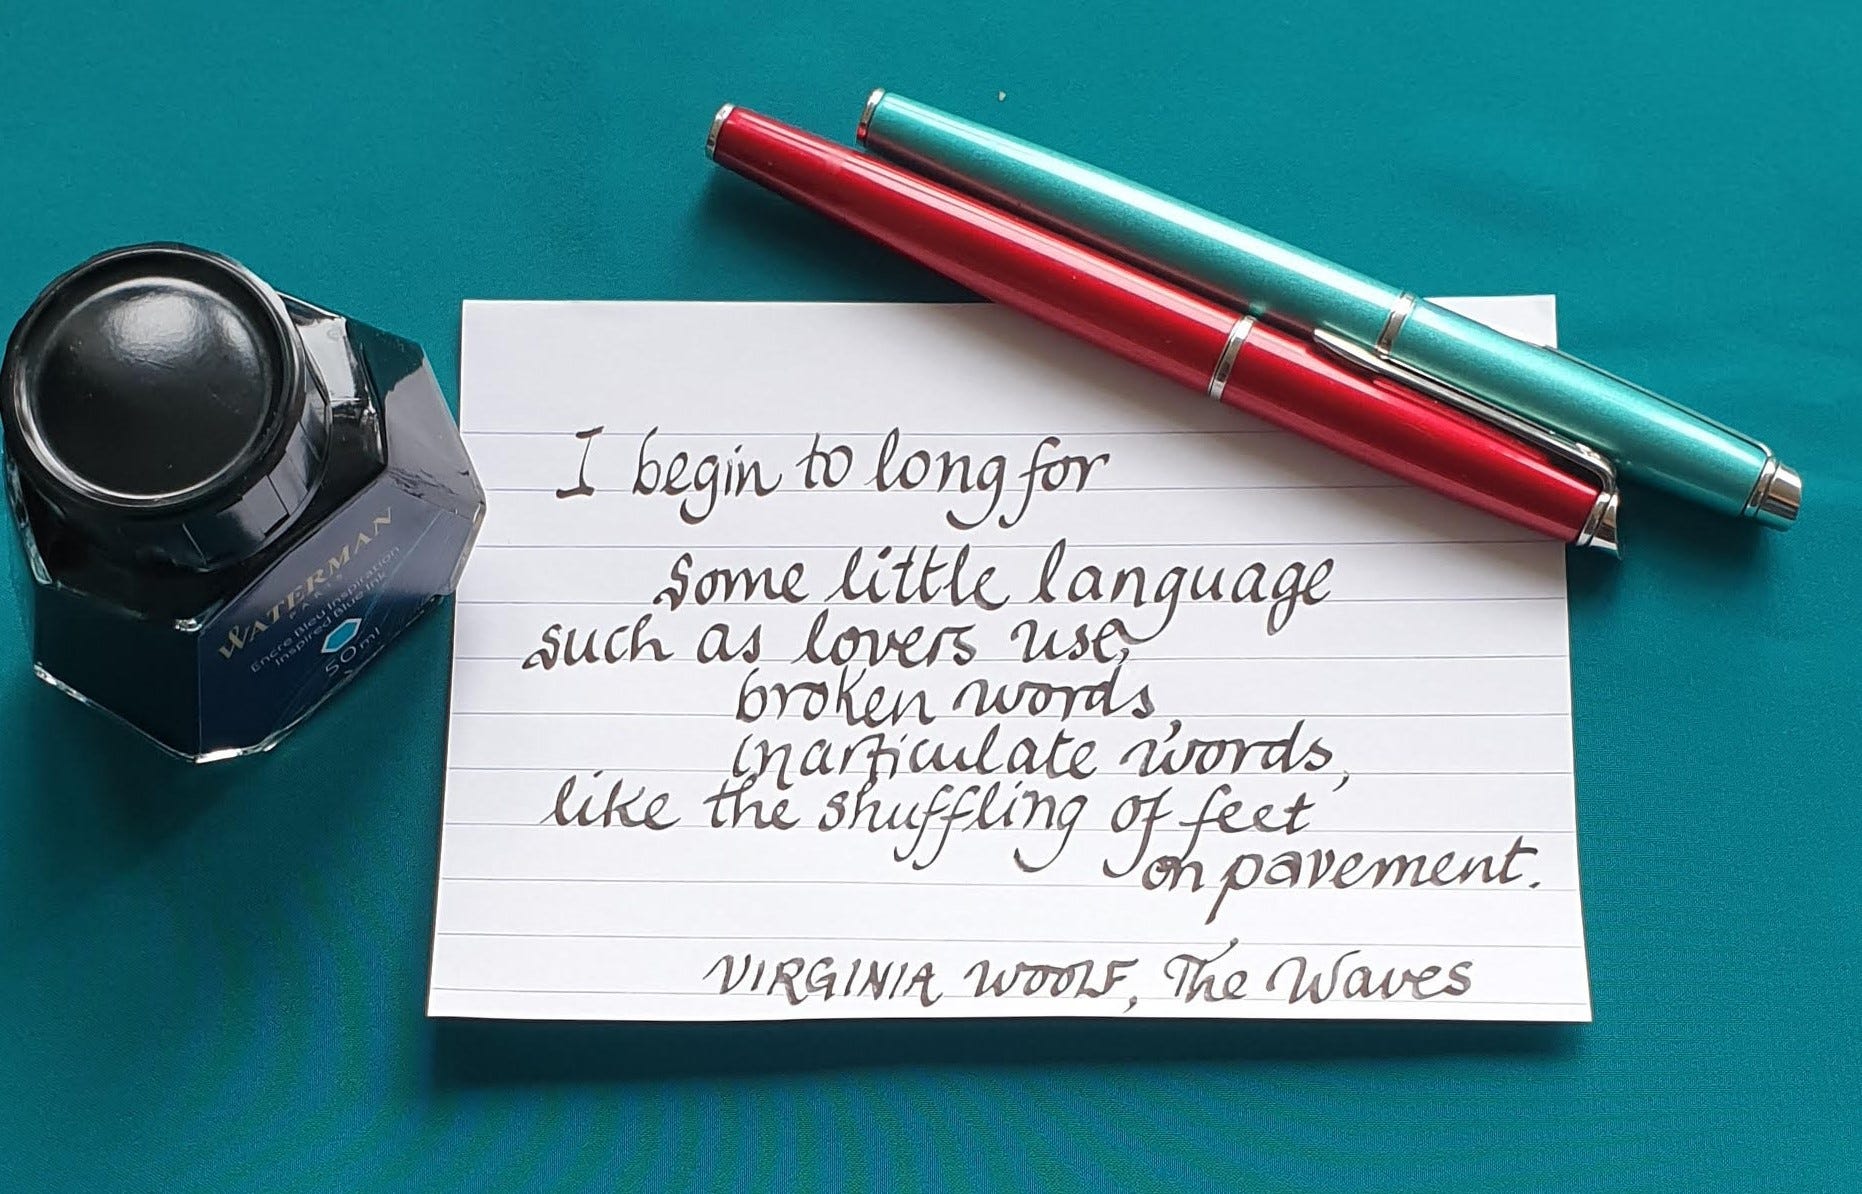 WATERMAN
PARIS
Encre Bleu Inspiration
Inspired Blue Ink
50ml
I begin to long for
some little language
such as lovers use,
broken words,
inarticulate words,
like the shuffling of feet
on pavement.
VIRGINIA WOOLF, The Waves